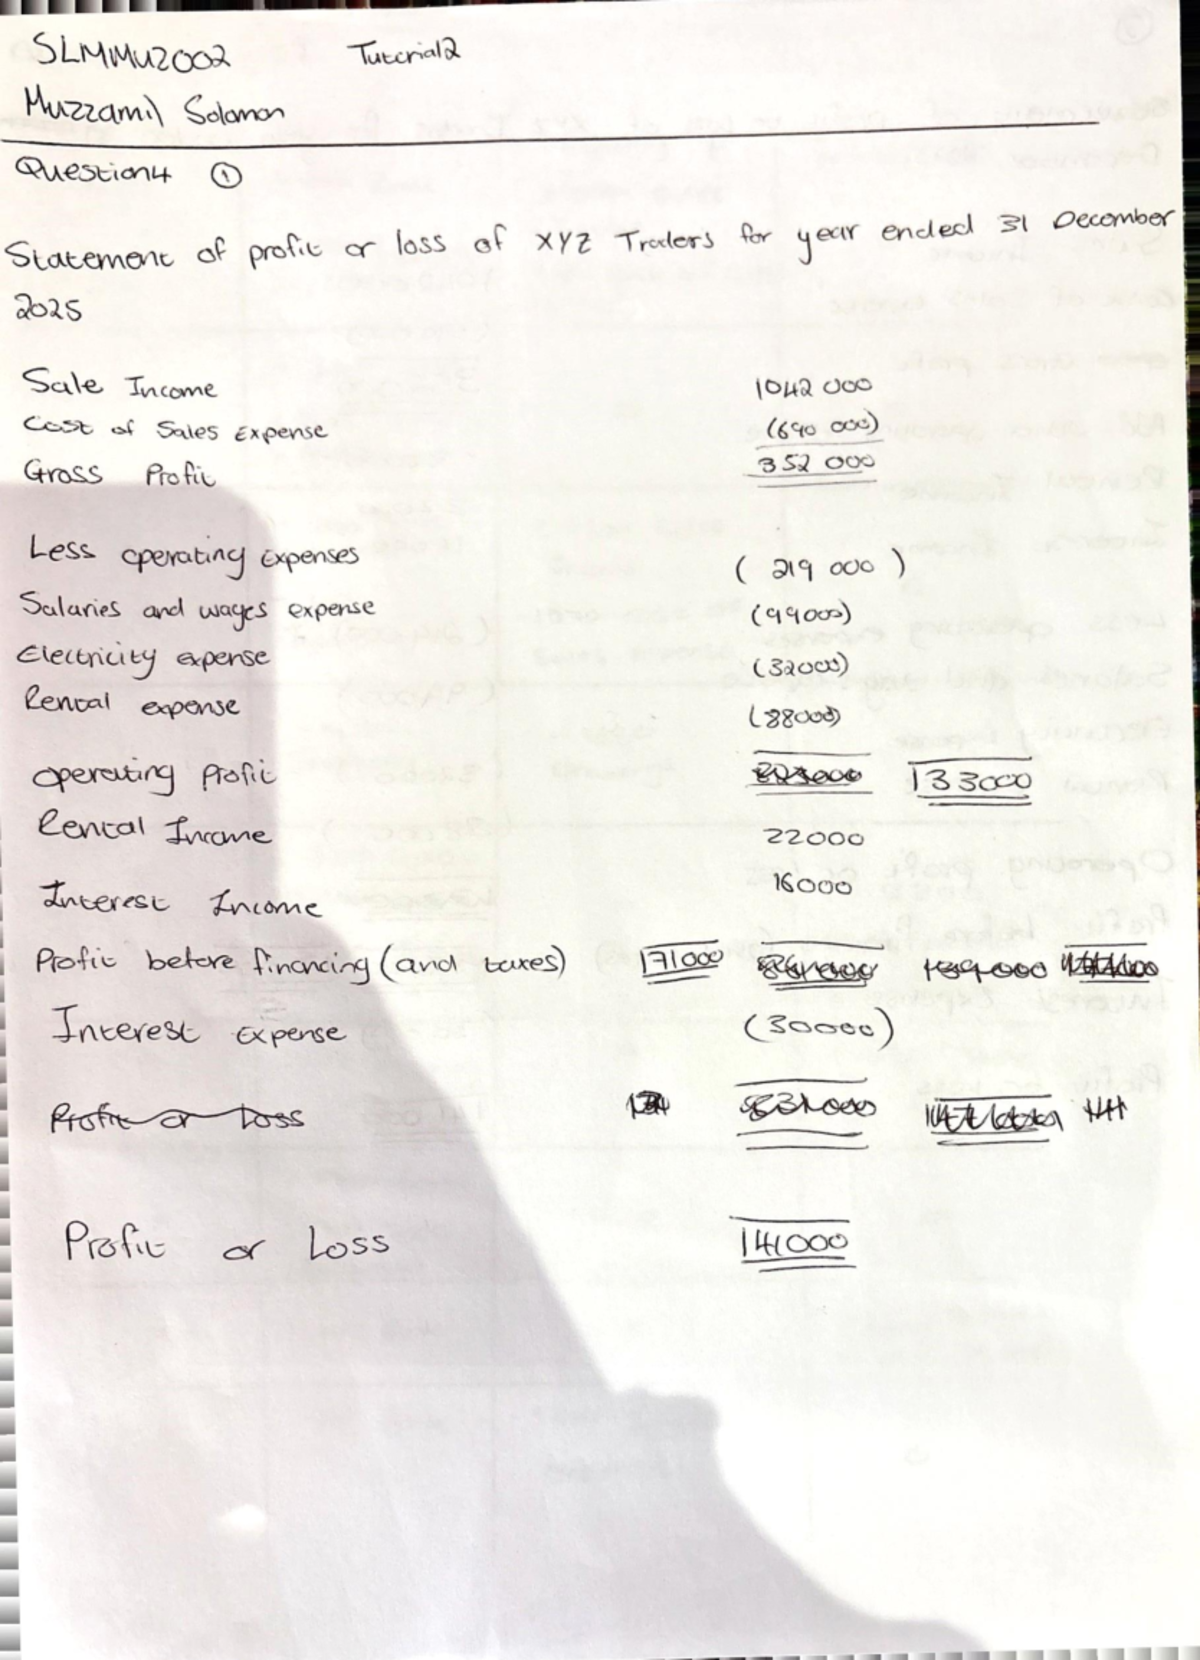 SLMMUZ002 Tutorial2
Muzzamil Solomon
Question4 ①
Statement of profit or loss of XYZ Traders for year ended 31 December
2025
Sale Income 1042 000
Cost of Sales Expense (690 000)
Gross Profit 352 000
Less operating Expenses ( 219 000 )
Salaries and wages expense (99000)
Electricity expense (32000)
Rental expense (88000)
operating Profit 133000
Rental Income 22000
Interest Income 16000
Profit before financing (and taxes) 171000 139000
Interest Expense (30000)
Profit or Loss 831000
Profit or Loss 141000